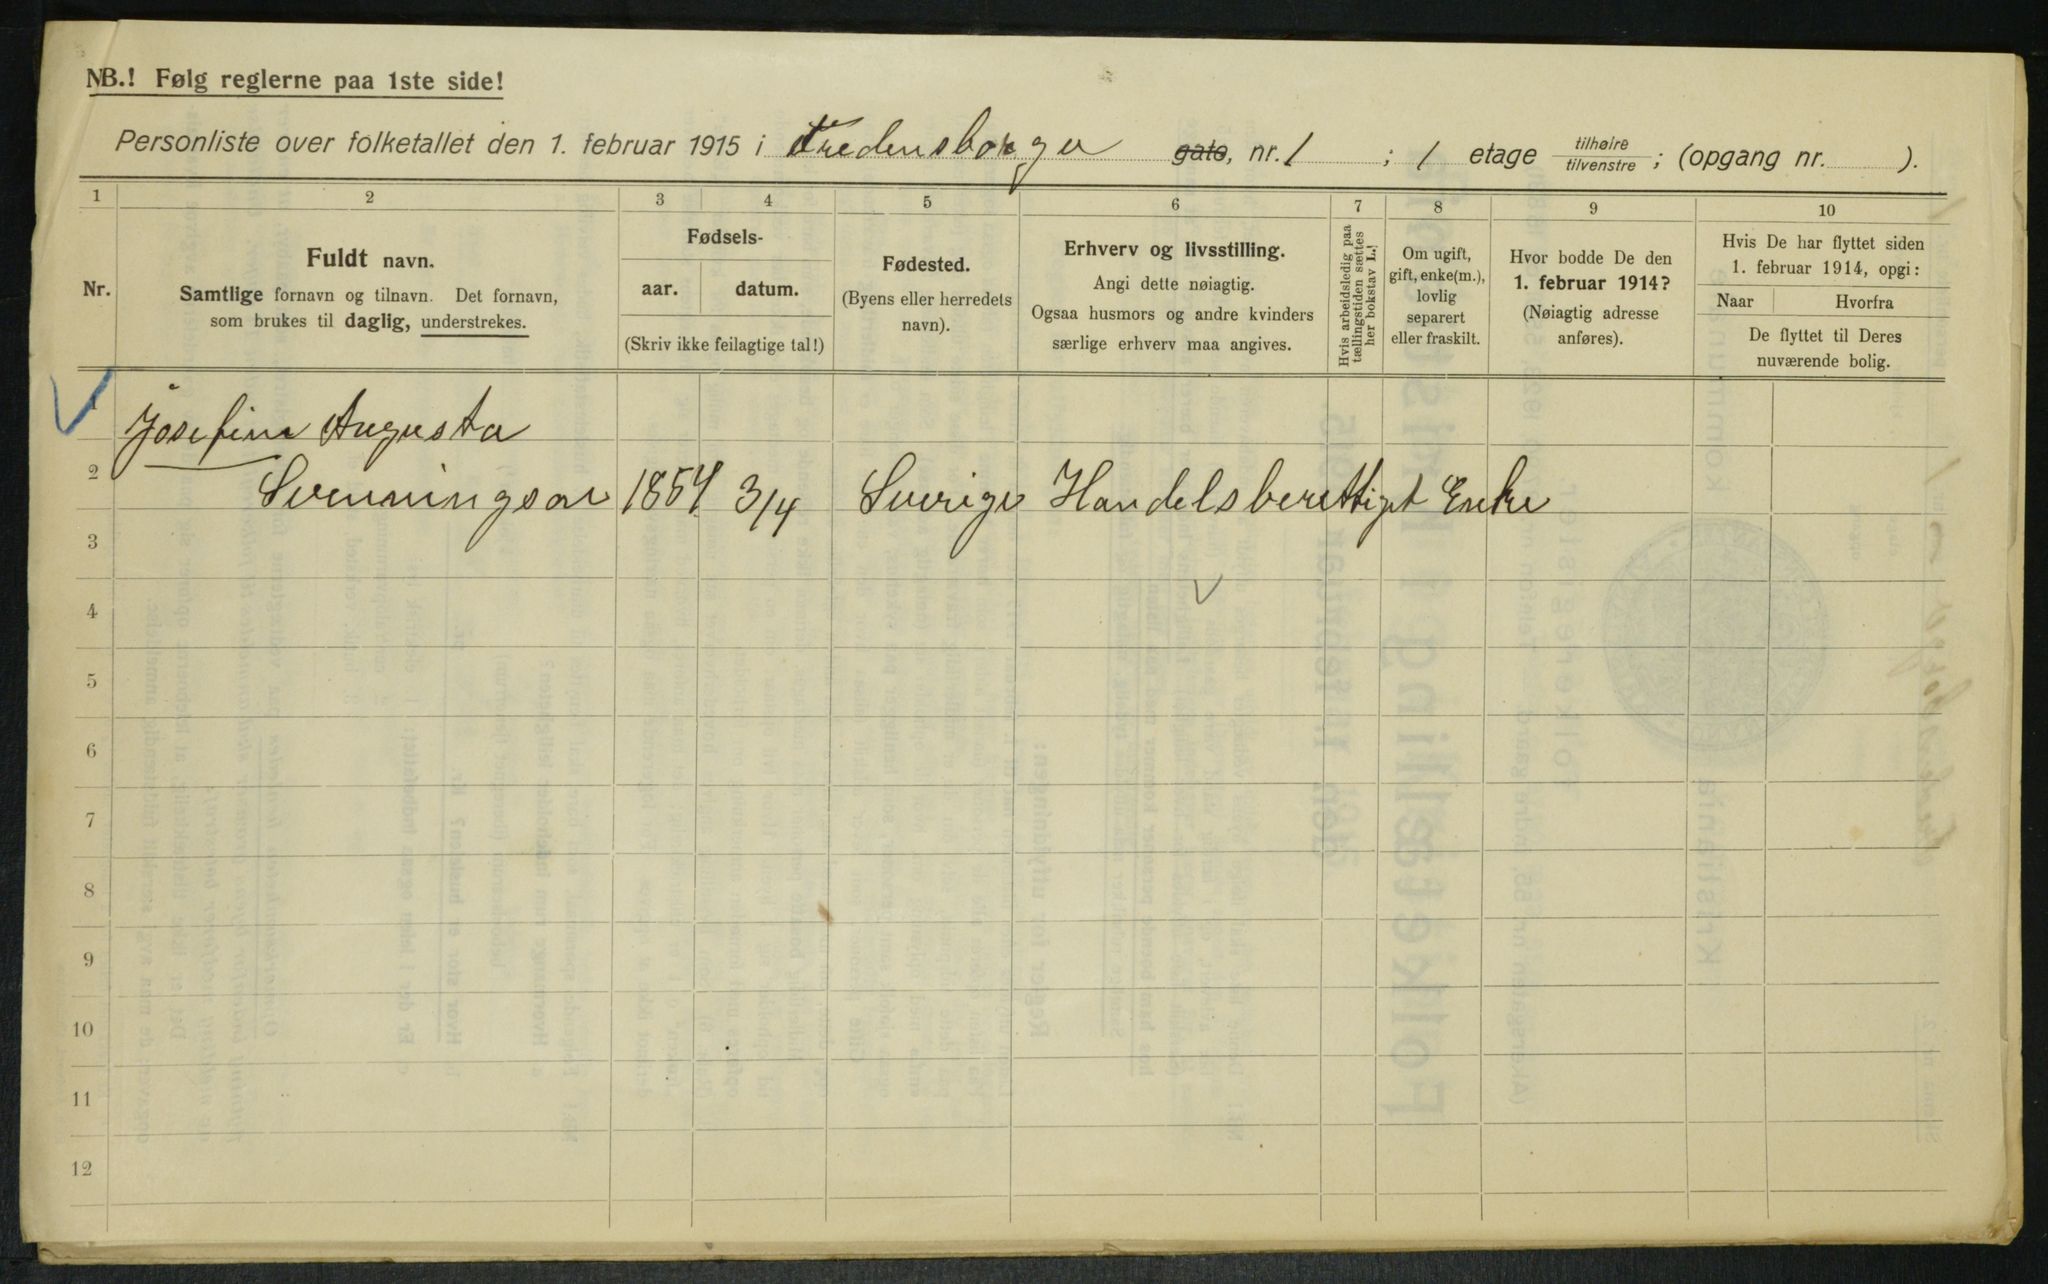 NB.! Følg reglerne paa 1ste side!
Personliste over folketallet den 1. februar 1915 i Fredensborgv gate, nr. 1 ; 1 etage tilhøire tilvenstre ; (opgang nr. ).
1 2 3 4 5 6 7 8 9 10
Nr.
Fuldt navn.
Samtlige fornavn og tilnavn. Det fornavn,
som brukes til daglig, understrekes.
Fødsels-
aar. datum.
(Skriv ikke feilagtige tal!)
Fødested.
(Byens eller herredets
navn).
Erhverv og livsstilling.
Angi dette nøiagtig.
Ogsaa husmors og andre kvinders
særlige erhverv maa angives.
Hvis arbeidsledig paa
tællingstiden sættes
her bokstav L.!
Om ugift,
gift, enke(m.),
lovlig
separert
eller fraskilt.
Hvor bodde De den
1. februar 1914?
(Nøiagtig adresse
anføres).
Hvis De har flyttet siden
1. februar 1914, opgi:
Naar Hvorfra
De flyttet til Deres
nuværende bolig.
1 Josefine Augusta
2 Svenningson 1854 3/4 Sverige Handelsberettiget Enke
3
4
5
6
7
8
9
10
11
12